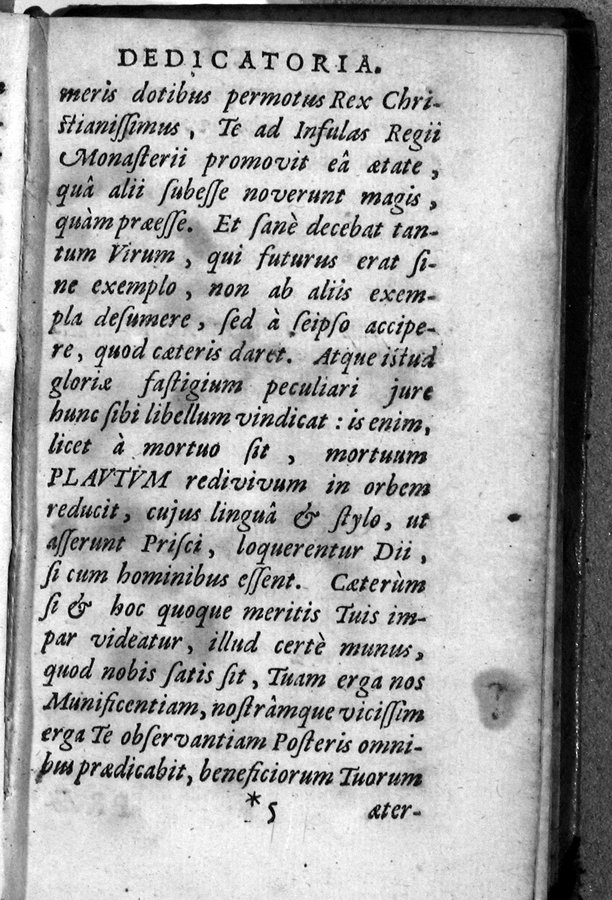 DEDICATORIA.
meris dotibus permotus Rex Chri-
stianissimus, Te ad Infulas Regii
Monasterii promovit eâ ætate,
quâ alii subesse noverunt magis,
quàm præesse. Et sanè decebat tan-
tum Virum, qui futurus erat si-
ne exemplo, non ab aliis exem-
pla desumere, sed à seipso accipe-
re, quod cæteris daret. Atque istud
gloriæ fastigium peculiari jure
hunc sibi libellum vindicat: is enim,
licet à mortuo sit, mortuum
PLAVTVM redivivum in orbem
reducit, cujus linguâ & stylo, ut
asserunt Prisci, loquerentur Dii,
si cum hominibus essent. Cæterùm
si & hoc quoque meritis Tuis im-
par videatur, illud certè munus,
quod nobis satis sit, Tuam erga nos
Munificentiam, nostrâmque vicissim
erga Te observantiam Posteris omni-
bus prædicabit, beneficiorum Tuorum
*5 æter-